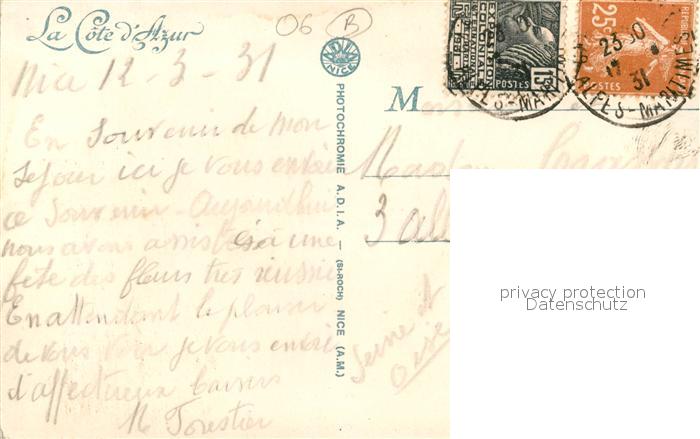 La Côte d'Azur
06 B
Nice 12-3-31
En Souvenir de mon
Séjour ici je vous envoie
ce Souvenir - Aujourdhui
nous avons assistés à une
fête des fleurs très réussie
En attendant le plaisir
de vous voir je vous envoie
d'affectueux baisers
M Forestier
NICE
PHOTOCHROMIE A.D.I.A. — (St-ROCH) NICE (A.M.)
POSTES 15c
25c POSTES
23 30
17
31
ALPES-MARITIMES
M
Madame
3 all
Seine et
Oise
privacy protection
Datenschutz